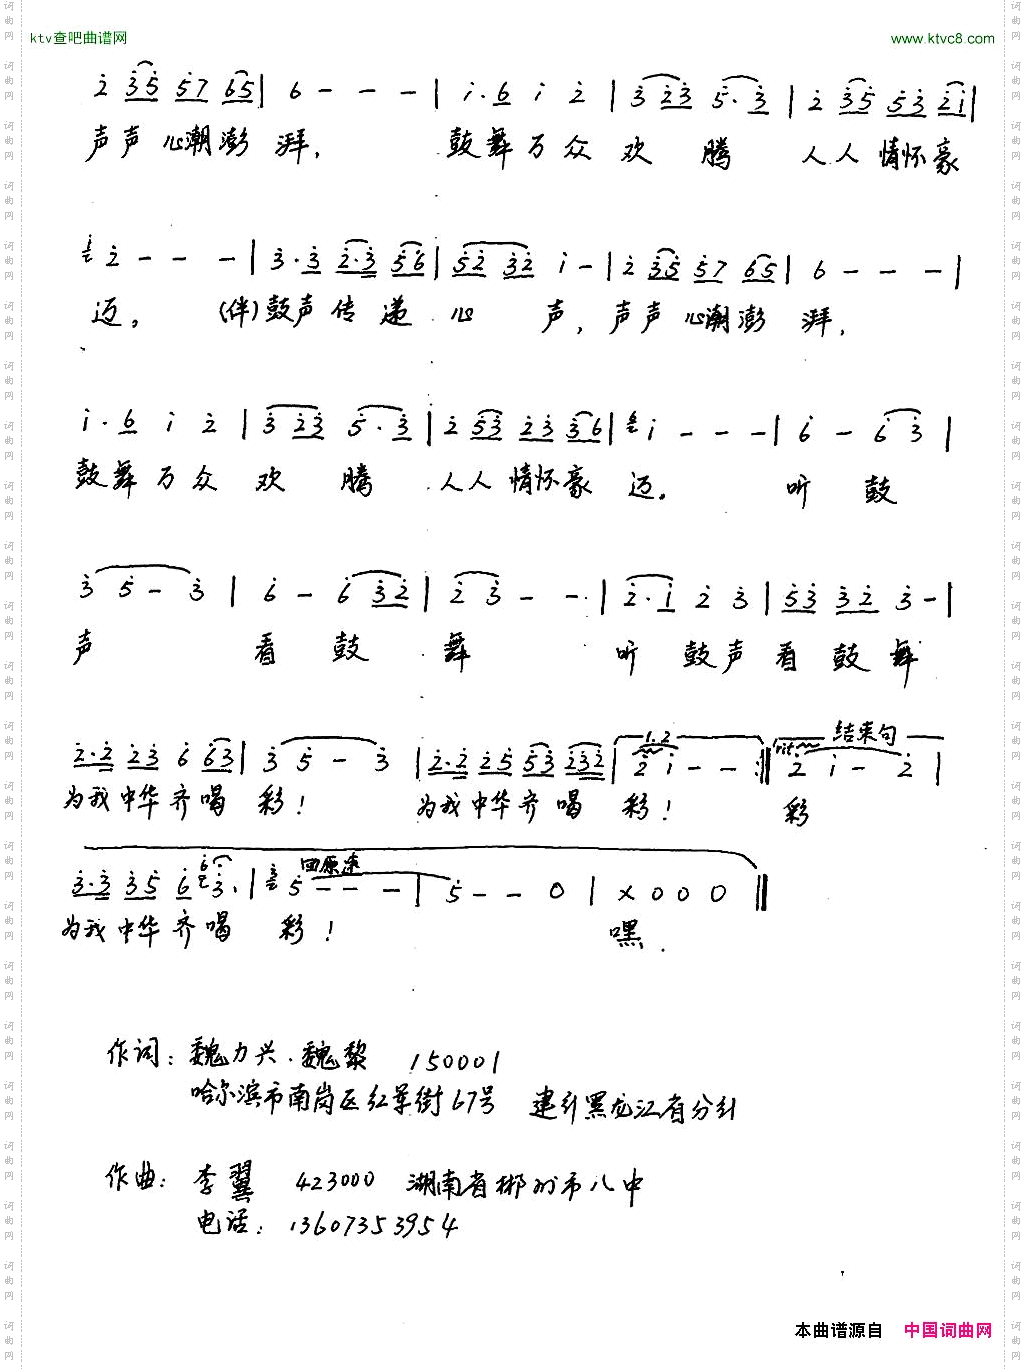 ktv查吧曲谱网
www.ktvc8.com
2 35 57 65 | 6 - - - | i. 6 i 2 | 3 23 5. 3 | 2 35 53 2i |
声声心潮澎湃, 鼓舞万众欢腾 人人情怀豪
2 - - - | 3. 3 2. 3 56 | 52 32 i - | 2 35 57 65 | 6 - - - |
迈。 (伴)鼓声传递心声, 声声心潮澎湃,
i. 6 i 2 | 3 23 5. 3 | 2 53 23 36 | i - - - | 6 - 6 3 |
鼓舞万众欢腾 人人情怀豪迈。 听鼓
3 5 - 3 | 6 - 6 32 | 2 3 - - | 2. i 2 3 | 53 32 3 - |
声 看鼓舞 听鼓声看鼓舞
1.2 结束句
rit.
2. 2 23 6 63 | 3 5 - 3 | 2. 2 25 53 232 | 2 i - - :|| 2 i - 2 |
为我中华齐喝彩! 为我中华齐喝彩! 彩
回原速
3. 3 35 6 3. | 5 - - - | 5 - - 0 | x 0 0 0 ||
为我中华齐喝彩! 嘿.
作词: 魏力兴.魏黎 150001
哈尔滨市南岗区红军街67号 建行黑龙江省分行
作曲: 李翼 423000 湖南省郴州市八中
电话: 13607353954
本曲谱源自 中国词曲网